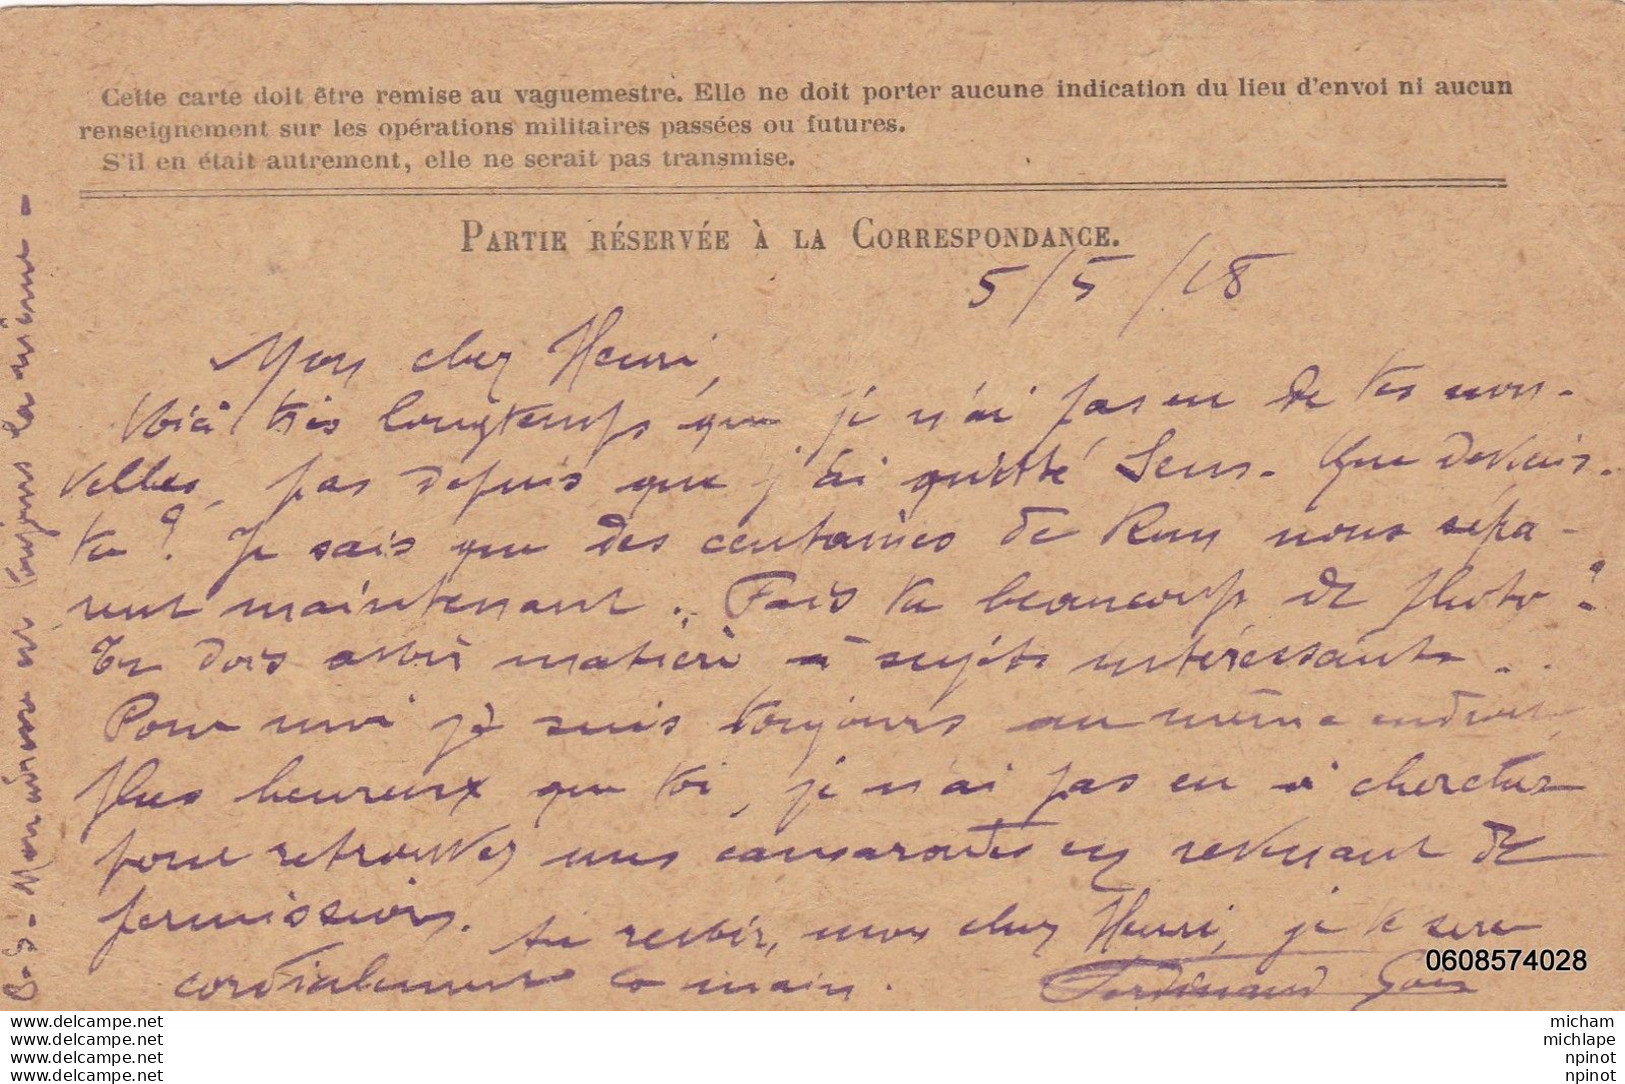 Cette carte doit être remise au vaguemestre. Elle ne doit porter aucune indication du lieu d'envoi ni aucun
renseignement sur les opérations militaires passées ou futures.
S'il en était autrement, elle ne serait pas transmise.
PARTIE RÉSERVÉE À LA CORRESPONDANCE.
5/5/18
Mon cher Henri,
Voici très longtemps que je n'ai pas eu de tes nou-
velles, pas depuis que j'ai quitté Sens. Que deviens-
tu ? Je sais que des centaines de Km nous sépa-
rent maintenant. Fais tu beaucoup de photo ?
Tu dois avoir matière à sujets intéressants..
Pour moi je suis toujours au même endroit,
plus heureux que toi, je n'ai pas eu à chercher
pour retrouver mes camarades en revenant de
permission. Au revoir, mon cher Henri, je te serre
cordialement la main. Ferdinand
P.S. - Mon adresse est toujours la même -
0608574028
www.delcampe.net
www.delcampe.net
www.delcampe.net
www.delcampe.net
micham
michlape
npinot
npinot